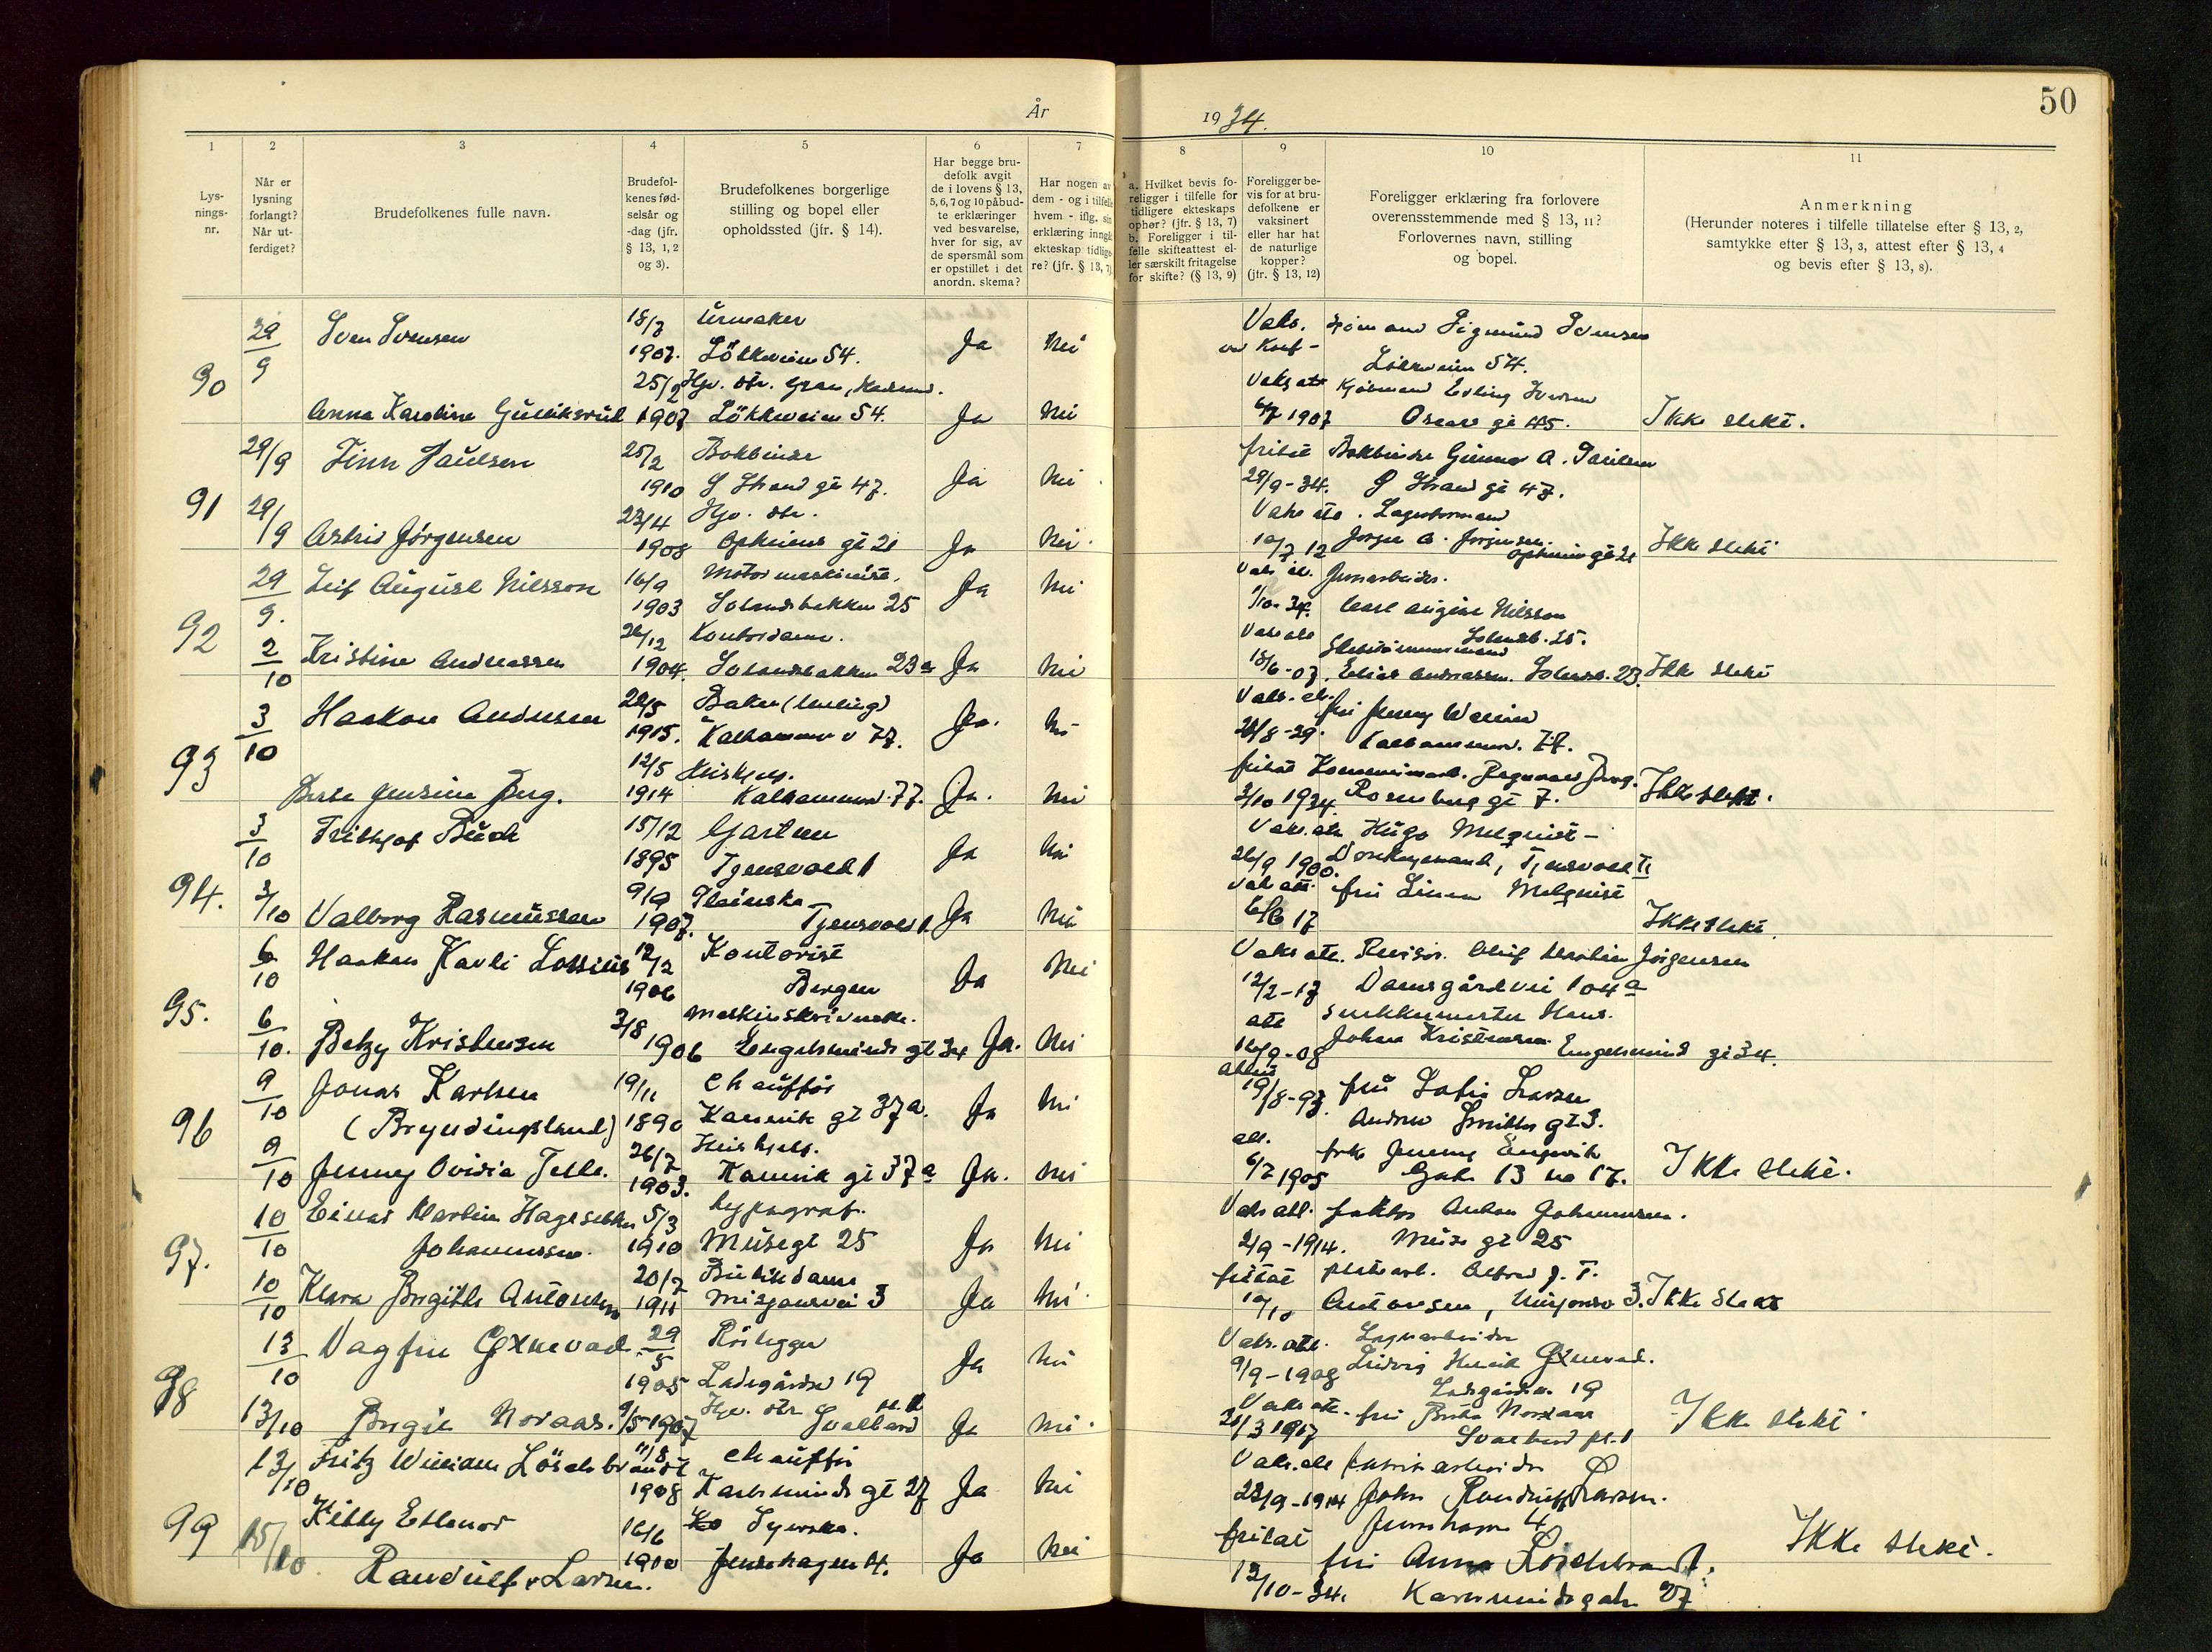 År 1934.
50
1
2
3
4
5
6
7
8
9
10
11
Lys-
nings-
nr.
Når er
lysning
forlangt?
Når ut-
ferdiget?
Brudefolkenes fulle navn.
Brudefol-
kenes fød-
selsår og
-dag (jfr.
§ 13, 1, 2
og 3).
Brudefolkenes borgerlige
stilling og bopel eller
opholdssted (jfr. § 14).
Har begge bru-
defolk avgit
de i lovens § 13,
5, 6, 7 og 10 påbud-
te erklæringer
ved besvarelse,
hver for sig, av
de spørsmål som
er opstillet i det
anordn. skema?
Har nogen av
dem - og i tilfelle
hvem - iflg. sin
erklæring inngå
ekteskap tidlige-
re? (jfr. § 13, 7)
a. Hvilket bevis fo-
religger i tilfelle for
tidligere ekteskaps
ophør? (jfr. § 13, 7)
b. Foreligger i til-
felle skifteattest el-
ler særskilt fritagelse
for skifte? (§ 13, 9)
Foreligger be-
vis for at bru-
defolkene er
vaksinert
eller har hat
de naturlige
kopper?
(jfr. § 13, 12)
Foreligger erklæring fra forlovere
overensstemmende med § 13, 11?
Forlovernes navn, stilling
og bopel.
Anmerkning
(Herunder noteres i tilfelle tillatelse efter § 13, 2,
samtykke efter § 13, 3, attest efter § 13, 4
og bevis efter § 13, 8).
90
29/9 Sven Svensen 18/7 Urmaker Vaks. Sigmund Svensen
1907. Lökkeveien 54. Ja Nei
Lökkeveien 54.
25/2 Hjv. dtr. Vaks att Kjøbmand Erling
Anna Karoline Gulliksrud 1907 Lökkeveien 54. Ja Nei 1907 Oscars gt 45. Ikke slekt.
91
29/9 Finn Paulsen 25/2 Bokbinder fritat Bokbinder Gunnar A. Paulsen
1910 Ø Strand gt 47. Ja Nei 29/9-34. Ø Strand gt 47.
29/9 23/4 Hjv. dtr. Vaks att. Lagerformand
Astrid Jørgensen 1908 gt 21 Ja Nei 12 A. Jørgensen. gt 21 Ikke slekt
92
29/9. Leif August Nilsson 16/9 Motormaskinist. Ja Nei Jernarbeider.
1903 Solandsbakken 25 1/10-34. Carl August Nilsson
2/10 26/12 Kontordame. Solandsb. 25.
Kristine Andreassen 1904. Solandsbakken 23a Ja Nei 18/6-07. Elias Andreassen. Solandsb. 23. Ikke slekt
93
3/10 Haakon Andersen 28/5 Baker Ja. Nei fru Jenny
1915. Kalhammerv 77. 8-29. Kalhammerv. 77.
12/5 Hushjelp. fritat Berg.
Berta Jensine Berg. 1914 Kalhammerv. 77. Ja. Nei 3/10 1934. Rosenberg gt 7. Ikke slekt.
94.
3/10 Fritjof Buch 15/12 Gartner Vaks. att. Hugo Melquist
1895 Tjensvoll 1 Ja Nei 26/9 1900. Tjensvoll
3/10 9/9 Vaks att. fru Melquist
Valborg Rasmussen 1907. Tjensvoll 1. Ja Nei 17 Ikke slekt.
95.
6/10 Haakon Kavli Lossius 12/2 Kontorist Vaks att. Revisor. Jörgensen
1906 Bergen Ja Nei 12/2-17 Damsgårdvei 104a
6/10. 3/8 Maskinskriverske. att
Betzy Kristensen 1906 Engelsminde gt 34 Ja. Nei 16/9-08 Johan Kristensen Engelsmind gt 34.
96
9/10 Jonas Karlsen 19/11 Chauffør 19/8-93. fru Sofie Larsen
(Bryndingsland) 1890 Kannik gt 37a. Ja Nei Andrew Smiths gt 3.
9/10 26/7 Hushjelp. att. frk Jenny
Jenny Ovidia Telle. 1903. Kannik gt 37a Ja. Nei 6/7 1905 Gate 13 no 17. Ikke slekt.
97.
10/10 Einar Martin Hageselle 5/3 typograf. Vaks att. faktor Anton Johannessen.
Johannessen. 1910 Musegt 25 Ja Nei 2/9-1914. Muse gt 25
10/10 20/7 Butikdame fritat Alfred J. T.
Klara Birgitte Antonsen 1911 Misjonsvei 3 Ja Nei 10/10 Antonsen, Misjonsv 3. Ikke slekt
98
13/10 Dagfin 29/5 Rörlegger Vaks. att. Lagerarbeider
1905 Ladegårdsv 19 Ja Nei 9/9-1908 Ludvig Henrik
Ladegårdsv. 19
13/10 Birgit Noraas. 9/5 1907 Hjv. dtr Svalbard pl. 1 Ja Nei Vaks att. fru Noraas
3 1917 Svalbard pl. 1 Ikke slekt
99
13/10 Fritz William Löschbrandt 11/8 Chauffør Vaks. att
1908 Karlsminde gt 27 Ja Nei 28/9-1914 John Randulff Larsen.
Kitty Ellenor fritat Jernhagen 4
15/10. 16/6 Syerske. Ikke slekt.
Randulff Larsen. 1910 Jernhagen 4. Ja Nei fru Anna Löschbrandt.
12/10-34. Karlsmindegate 27